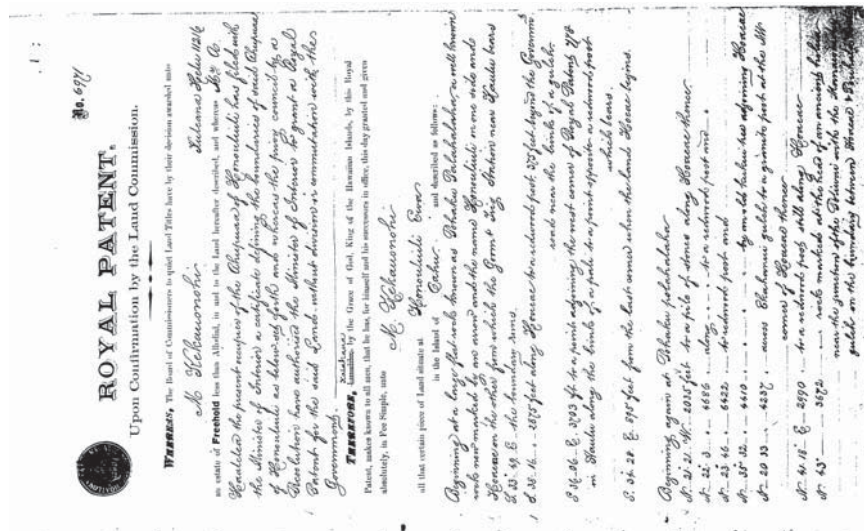 No. 6971
ROYAL PATENT.
Upon Confirmation by the Land Commission.
WHEREAS, The Board of Commissioners to quiet Land Titles have by their decision awarded unto
M Kekauonohi Kuleana Helu 11216
an estate of Freehold less than Allodial, in and to the Land hereafter described, and whereas
Haalelea the present occupier of the Ahupuaa of Honouliuli has filed with
the Minister of Interior a certificate defining the boundaries of said Ahupuaa
of Honouliuli as below set forth and whereas the privy council by a
Resolution have authorized the Minister of Interior to grant a Royal
Patent for the said Land without division or commutation with the
Government.
THEREFORE, by the Grace of God, King of the Hawaiian Islands, by this Royal
Patent, makes known to all men, that he has, for himself and his successors in office, this day granted and given
absolutely, in Fee Simple, unto
M Kekauonohi
all that certain piece of Land situate at Honouliuli Ewa
in the Island of Oahu and described as follows:
Beginning at a large flat rock known as Pohaku Palahalaha, a well known
rock now marked by an arrow and the name Honouliuli on one side and
Hoaeae on the other from which the Govmt Trig Station near Kaulu bears
the boundary runs.
along Hoaeae to a redwood post; 375 feet beyond the Governmt
road near the brink of a gulch.
ft to a point adjoining the west corner of Royal Patent
in Kaulu along the brink of a pali to a point opposite a redwood post
which bears.
S. 34. 28 E. 895 feet from the last corner when the lands Hoaeae begins.
Beginning again at Pohaku palahalaha
N. 21. 21. W. 2035 feet to a pile of stones along Hoaeae thence
N. 22. 3 4686 along to a redwood post and
N. 23. 46 6422 to redwood post and
N. 35. 32 4410 by an old kukui tree adjoining Hoaeae
N. 20 33 4237 across gulch to a granite post at the
corner of Hoaeae thence
N. 41. 18 E. 2890 to a redwood post still along Hoaeae
N. 43 3672 rock marked at the head of an ancient
near the junction of the with the
gulch on the boundary between Hoaeae